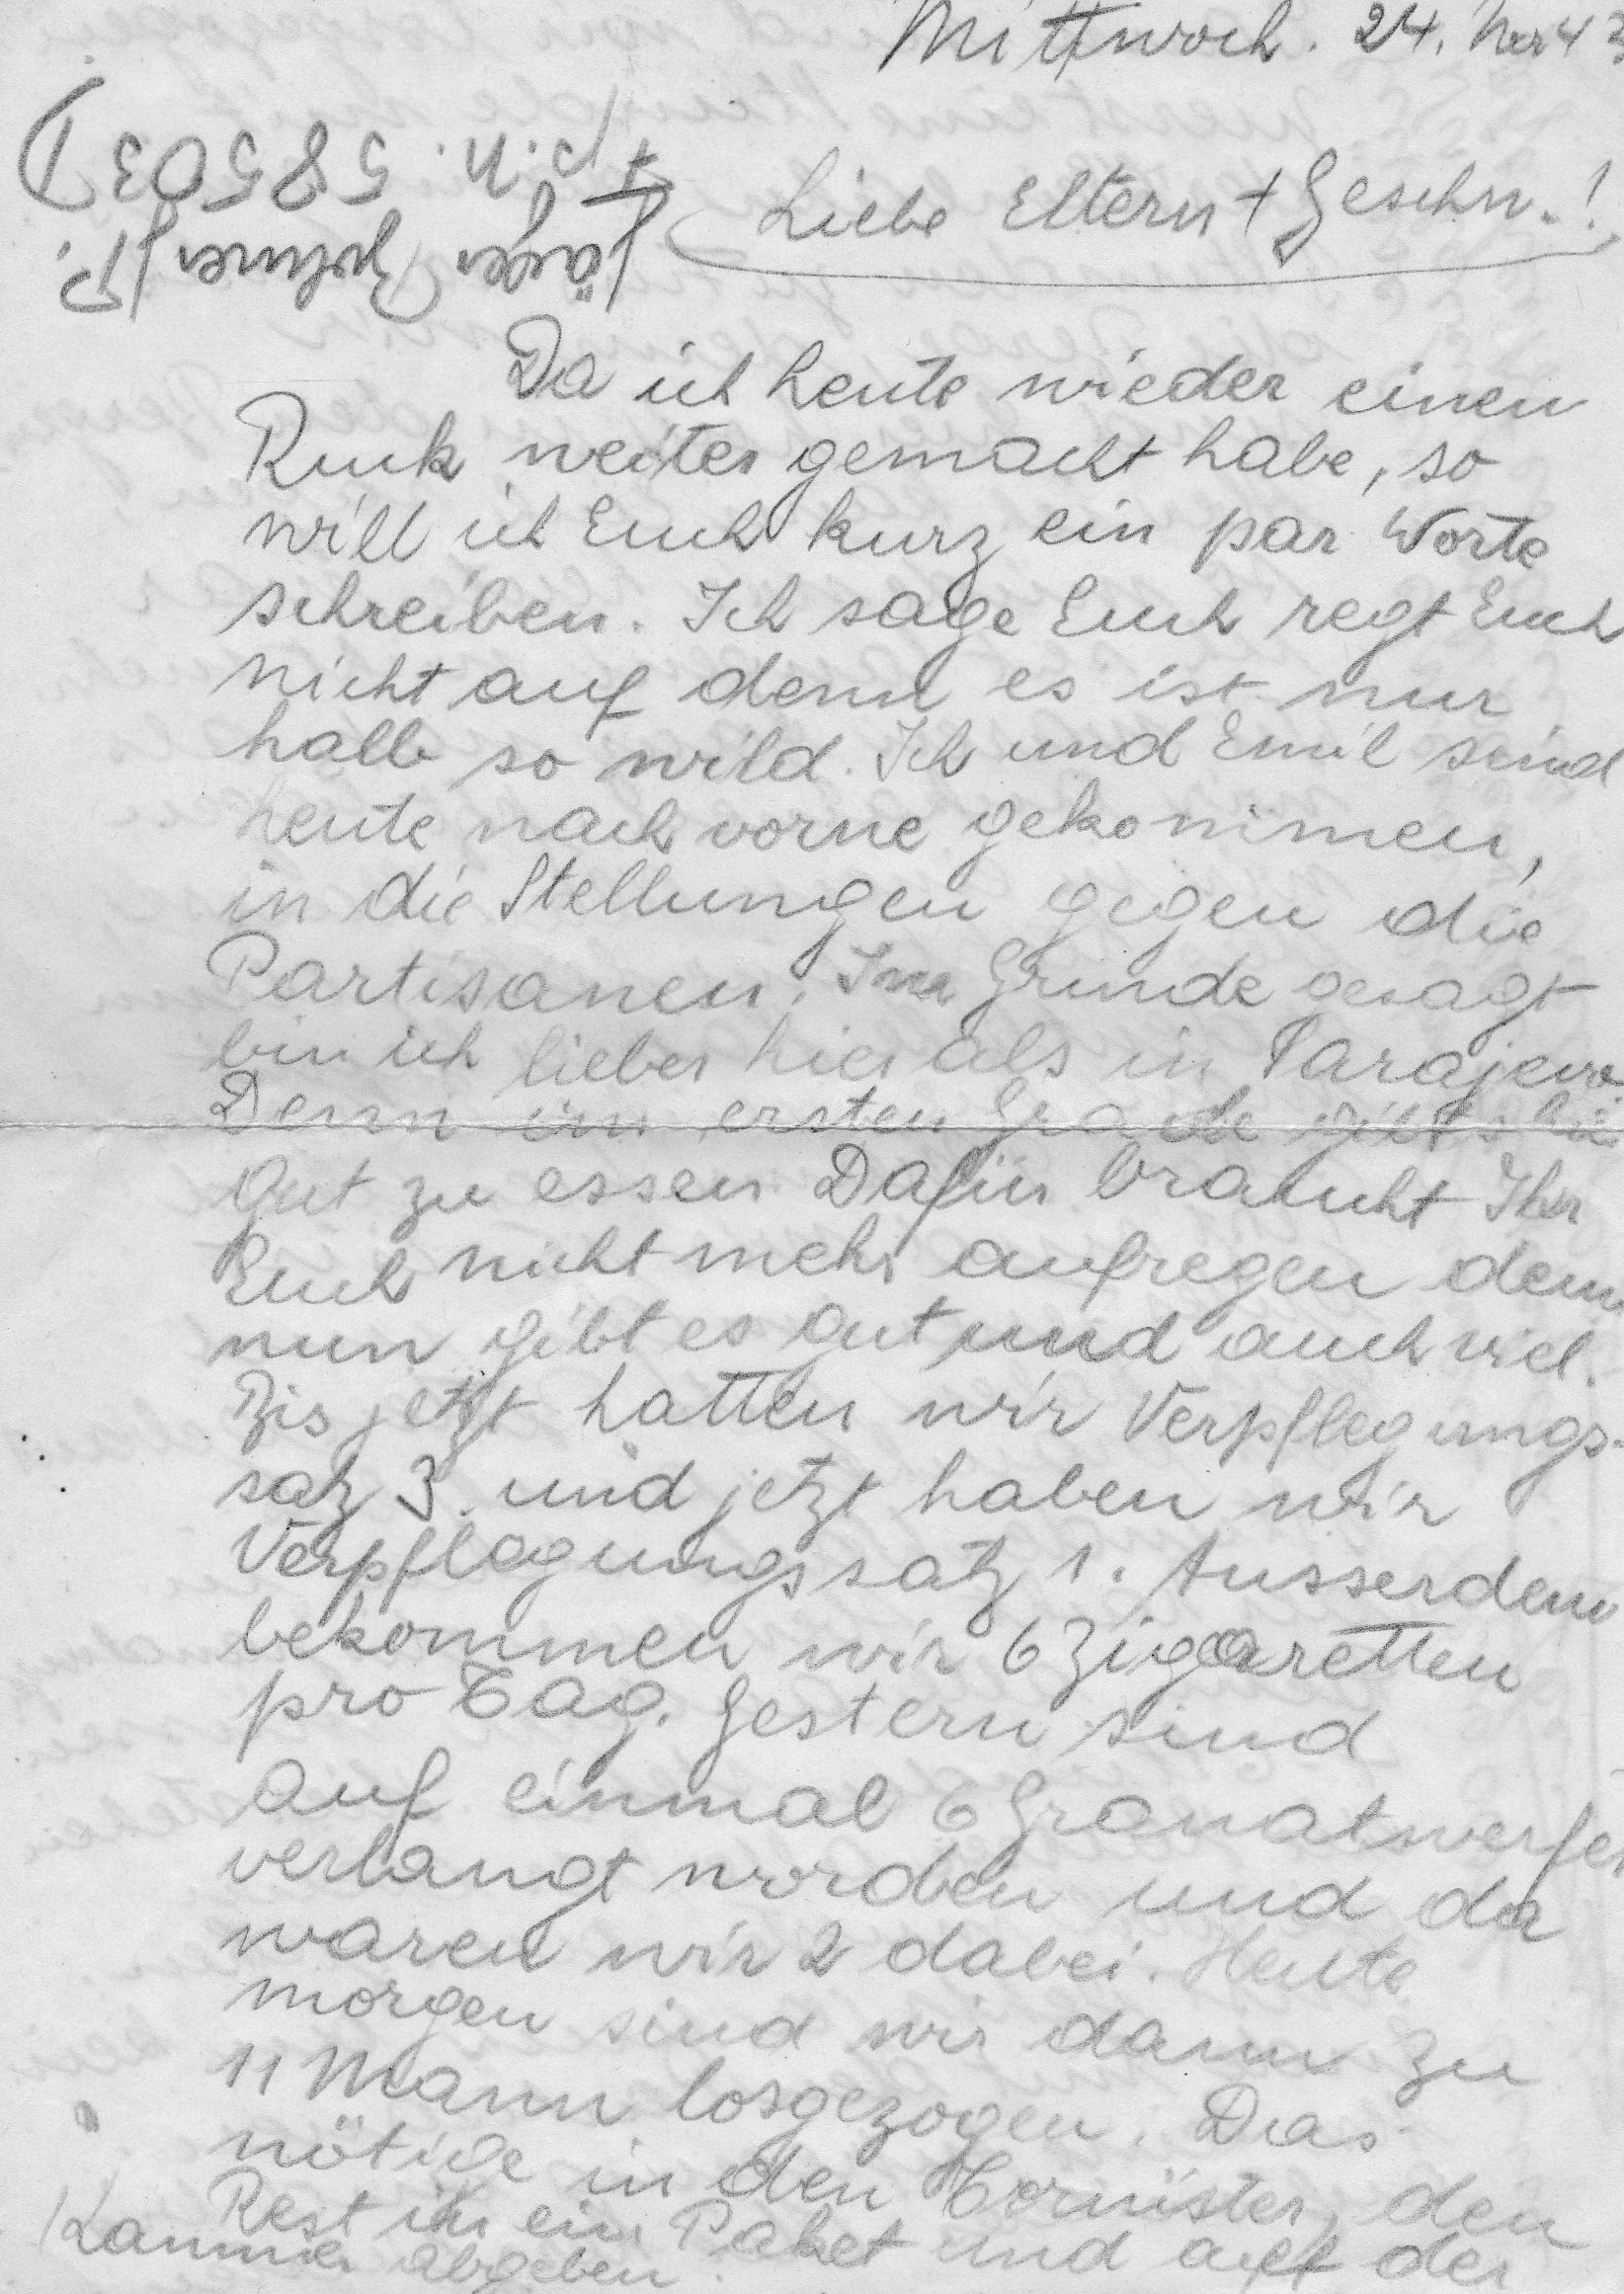 Mittwoch. 24. Nov 43
Liebe Eltern + Geschw.!
Jäger
F.P.N. 58503 D)
Da ich heute wieder einen
Ruck weiter gemacht habe, so
will ich Euch kurz ein par Worte
schreiben. Ich sage Euch regt Euch
nicht auf denn es ist nur
halb so wild. Ich und Emil sind
heute nach vorne gekommen,
in die Stellungen gegen die
Partisanen. Im Grunde gesagt
bin ich lieber hier als in Sarajewo
Denn im ersten Grade gibts hier
gut zu essen Dafür braucht Ihr
Euch nicht mehr aufregen denn
nun gibt es gut und auch viel.
Bis jetzt hatten wir Verpflegungs-
satz 3. und jetzt haben wir
Verpflegungssatz 1. Ausserdem
bekommen wir 6 Zigaretten
pro Tag. Gestern sind
auf einmal 6 Granatwerfer
verlangt worden und da
waren wir 2 dabei. Heute
morgen sind wir dann zu
11 Mann losgezogen. Das
nötige in den Tornister, den
Rest in ein Paket und auf der
Kammer abgeben.